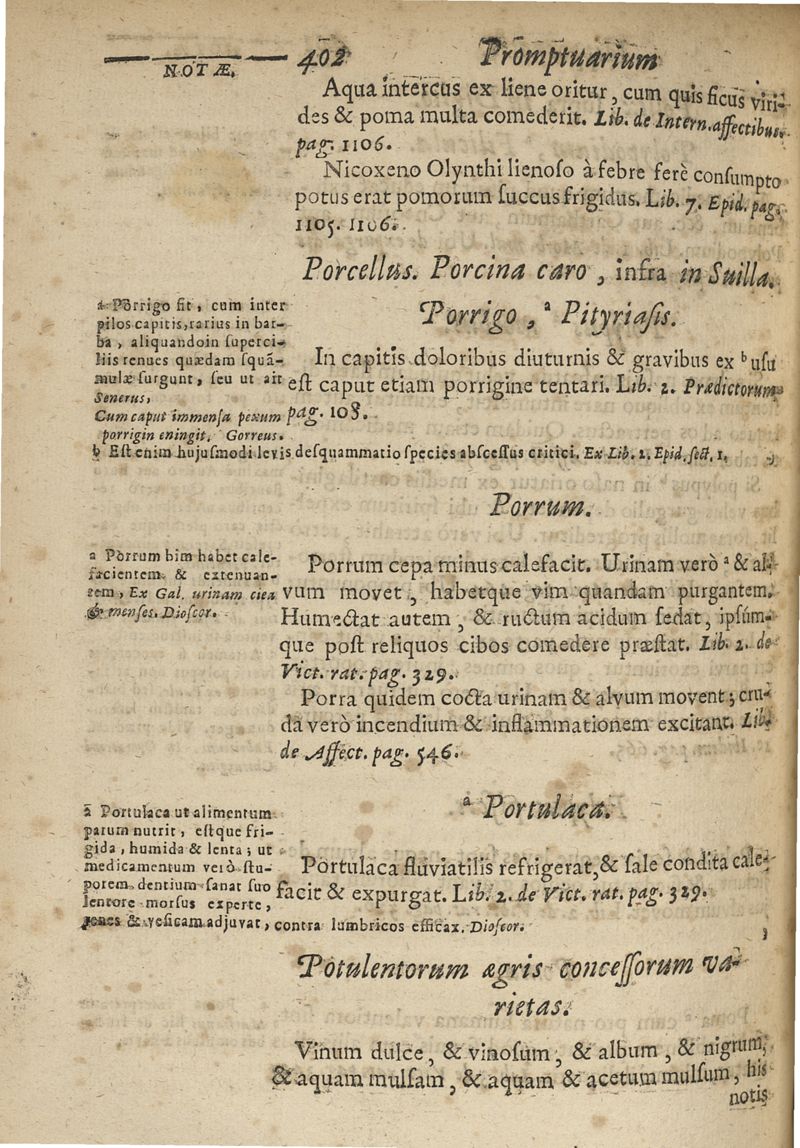 NOTÆ.
402 Promptuarium
Aqua intercus ex liene oritur, cum quis ficus viri-
des & poma multa comederit. Lib. de Intern. affectibus.
pag. 1106.
Nicoxeno Olynthi lienoso à febre ferè consumpto
potus erat pomorum succus frigidus. Lib. 7. Epid. pag.
1105. 1106.
Porcellus. Porcina caro, infra in Suilla.
Porrigo, a Pityriasis.
In capitis doloribus diuturnis & gravibus ex b usu
est caput etiam porrigine tentari. Lib. 2. Prædictorum
pag. 108.
a Porrigo fit, cum inter
pilos capitis, rarius in bar-
ba, aliquando in superci-
liis tenues quædam squã-
mulæ surgunt, seu ut ait
Serenus,
Cum caput immensa pexum
porrigin eningit. Gorreus.
b Est enim hujusmodi levis desquammatio species abscessus critici. Ex Lib. 2. Epid. sect. 1.
Porrum.
Porrum cepa minus calefacit. Urinam verò a & al-
vum movet, habetque vim quandam purgantem.
Humectat autem, & ructum acidum sedat, ipsúm-
que post reliquos cibos comedere præstat. Lib. 2. de
Vict. rat. pag. 329.
Porra quidem cocta urinam & alvum movent; cru-
da verò incendium & inflammationem excitant. Lib.
de Affect. pag. 546.
a Porrum bim habet cale-
facientem & extenuan-
tem, Ex Gal. urinam ciea
& menses. Dioscor.
a Portulaca.
Portulaca fluviatilis refrigerat, & sale condita cale-
facit & expurgat. Lib. 2. de Vict. rat. pag. 329.
ã Portulaca ut alimentum
parum nutrit, estque fri-
gida, humida & lenta; ut
medicamentum verò stu-
porem dentium sanat suo
lentore morsus experte,
& vesicam adjuvat, contra lumbricos efficax. Dioscor.
Potulentorum ægris concessorum va-
rietas.
Vinum dulce, & vinosum, & album, & nigrum,
& aquam mulsam, & aquam & acetum mulsum, his
notis